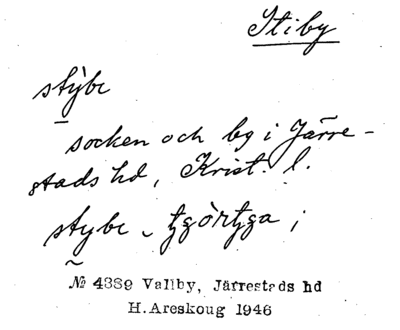 Stiby
stỳbe
socken och by i Järre-
stads hd, Krist. l.
stybe
№ 4389 Vallby, Järrestads hd
H.Areskoug 1946